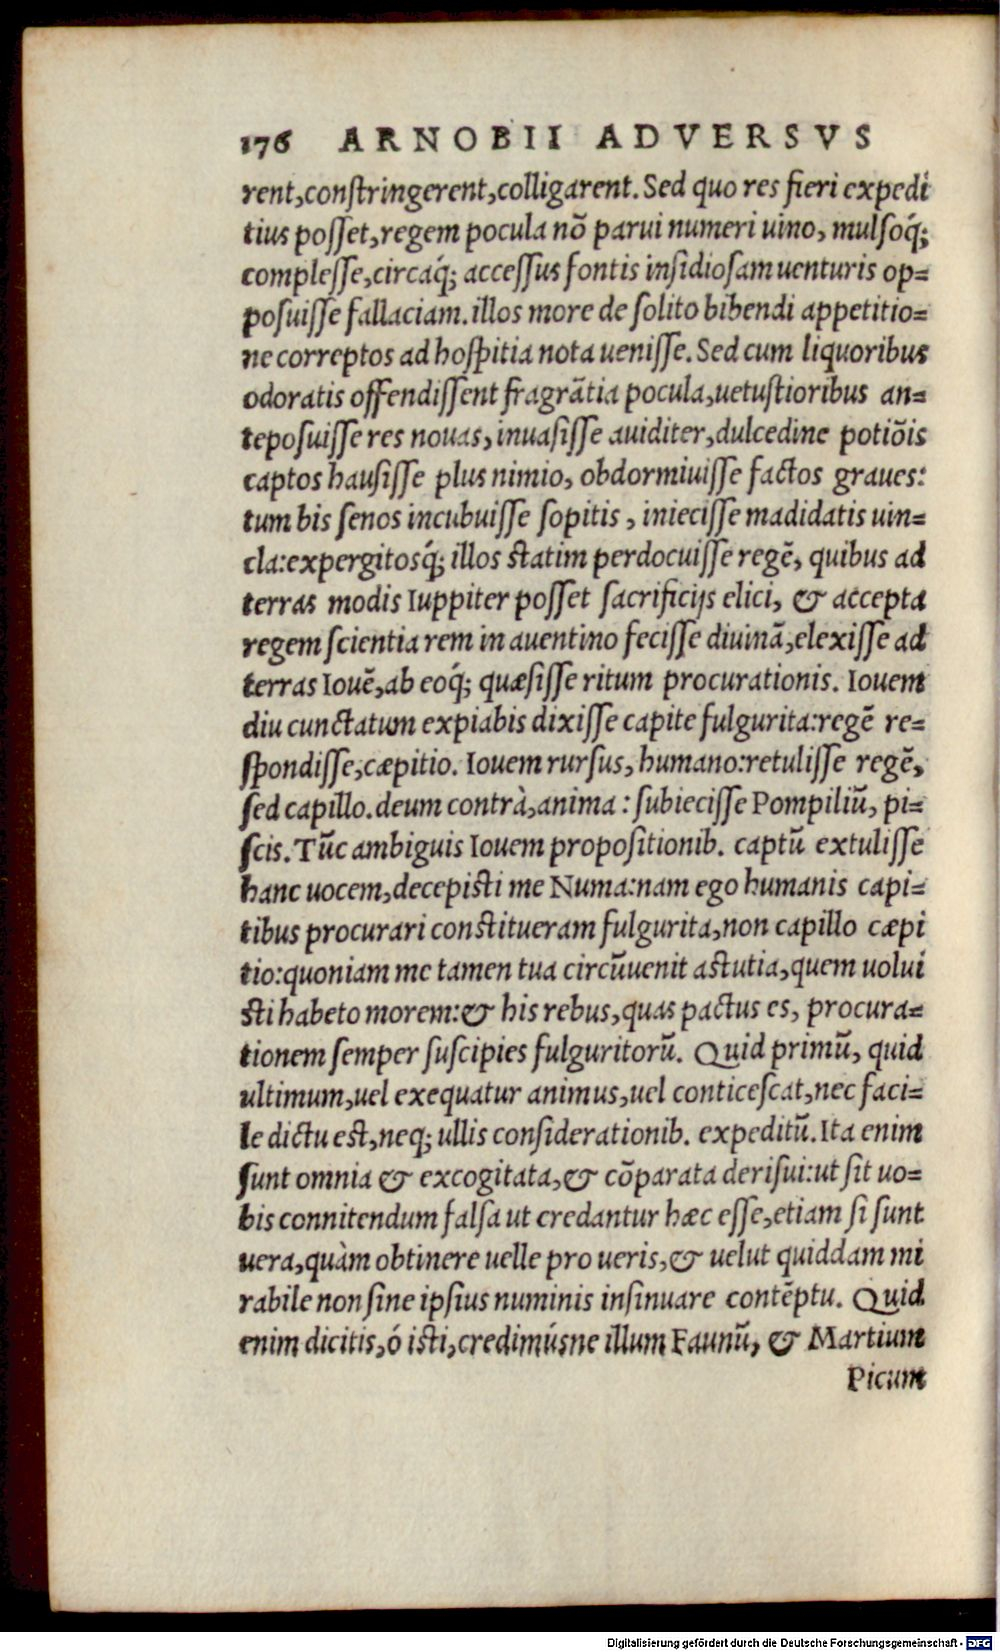 176 ARNOBII ADVERSVS
rent,conſtringerent,colligarent. Sed quo res fieri expedi
tius poſſet,regem pocula nõ parui numeri uino, mulſoq́;
compleſſe,circaq́; acceſſus fontis inſidioſam uenturis op=
poſuiſſe fallaciam. illos more de ſolito bibendi appetitio=
ne correptos ad hoſpitia nota ueniſſe. Sed cum liquoribus
odoratis offendiſſent fragrãtia pocula,uetuſtioribus an=
tepoſuiſſe res nouas, inuaſiſſe auiditer,dulcedine potiõis
captos hauſiſſe plus nimio, obdormiuiſſe factos graues:
tum bis ſenos incubuiſſe ſopitis , inieciſſe madidatis uin=
cla:expergitosq́; illos ſtatim perdocuiſſe regẽ, quibus ad
terras modis Iuppiter poſſet ſacrificijs elici, & accepta
regem ſcientia rem in auentino feciſſe diuinã,elexiſſe ad
terras Iouẽ,ab eoq́; quæſiſſe ritum procurationis. Iouem
diu cunctatum expiabis dixiſſe capite fulgurita:regẽ re=
ſpondiſſe,cæpitio. Iouem rurſus, humano:retuliſſe regẽ,
ſed capillo. deum contrà,anima : ſubieciſſe Pompiliũ, pi=
ſcis. Tũc ambiguis Iouem propoſitionib. captũ extuliſſe
hanc uocem,decepiſti me Numa:nam ego humanis capi=
tibus procurari conſtitueram fulgurita,non capillo cæpi
tio:quoniam me tamen tua circũuenit aſtutia,quem uolui
ſti habeto morem:& his rebus,quas pactus es, procura=
tionem ſemper ſuſcipies fulguritorũ. Quid primũ, quid
ultimum,uel exequatur animus,uel conticeſcat,nec faci=
le dictu eſt,neq; ullis conſiderationib. expeditũ. Ita enim
ſunt omnia & excogitata,& cõparata deriſui:ut ſit uo=
bis connitendum falſa ut credantur hæc eſſe,etiam ſi ſunt
uera,quàm obtinere uelle pro ueris,& uelut quiddam mi
rabile non ſine ipſius numinis inſinuare contẽptu. Quid
enim dicitis,ó iſti,credimúsne illum Faunũ, & Martium
Picum
Digitalisierung gefördert durch die Deutsche Forschungsgemeinschaft - DFG